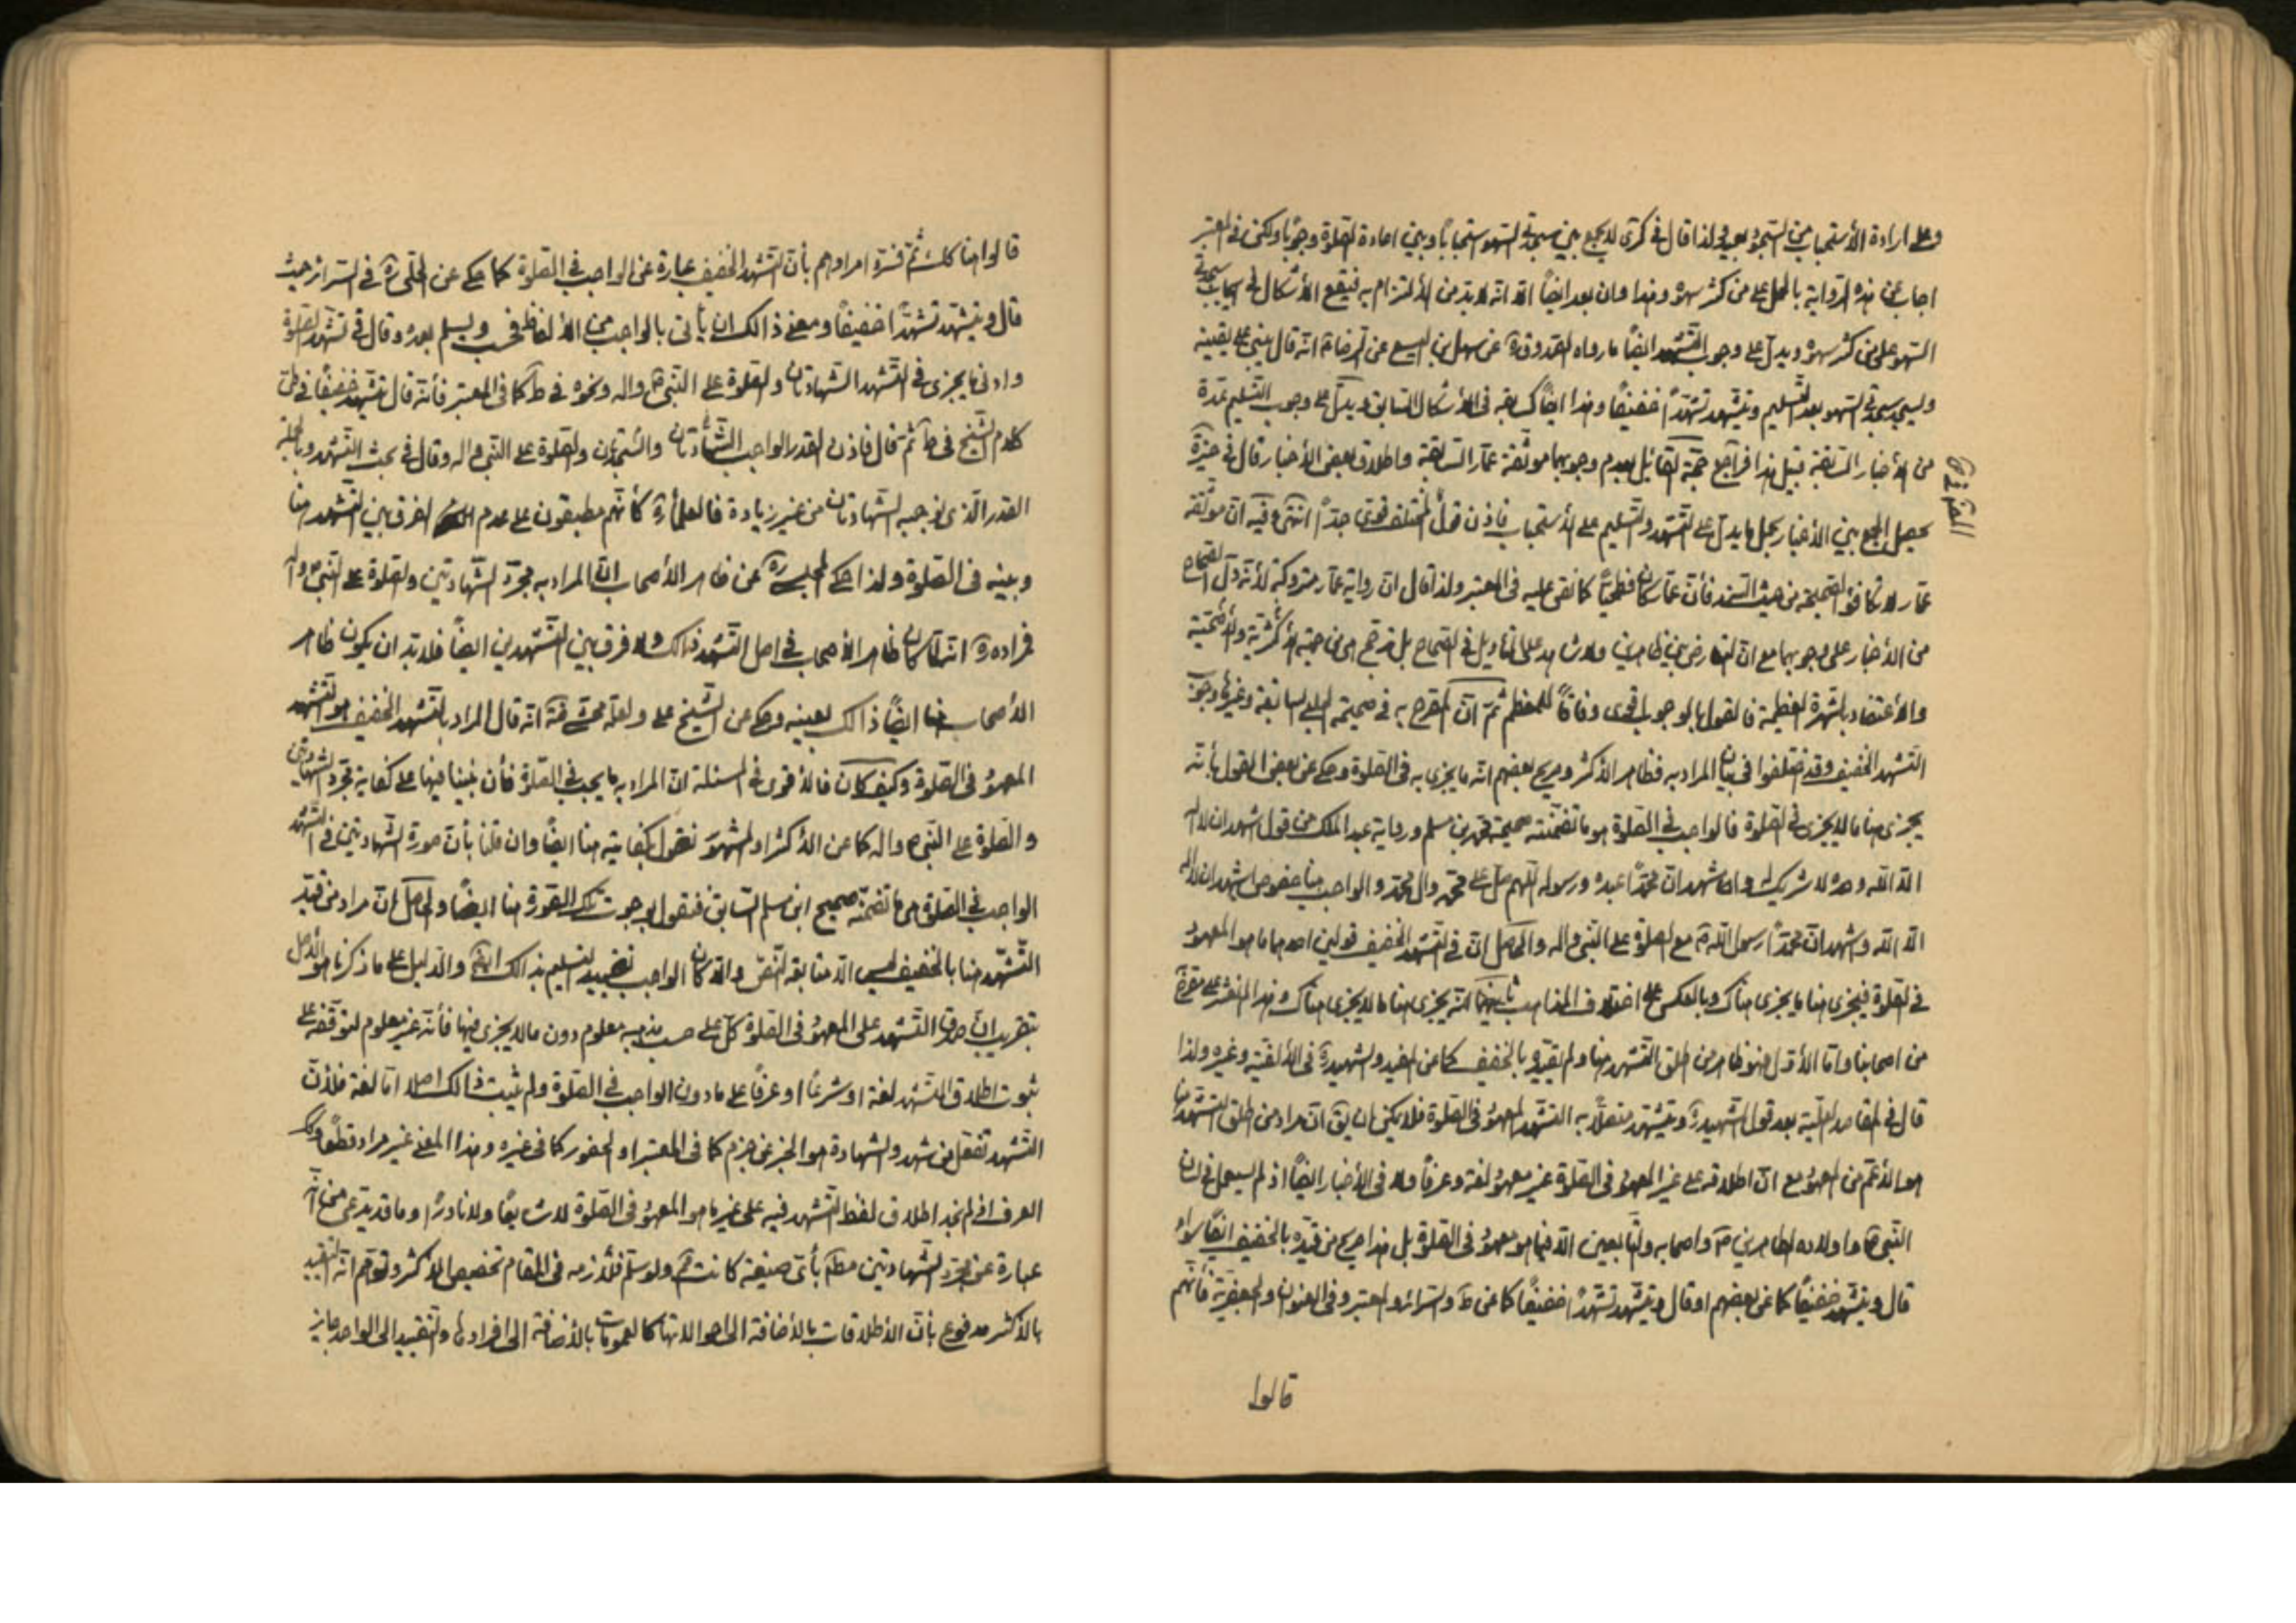 وعلى ارادة الأستحباب من السجود بعيد ولذا قال في كرى لا يجمع بين سجدتي السهو استحبابًا وبين اعادة الصلوة وجوبًا ولكن في المعتبر
اجاب عن هذه الرواية بالحمل على من كثر سهوه وهذا وان بعد ايضًا الا انه لا بد من الألتزام به فيقع الأشكال في ايجاب سجدتي
السهو على من كثر سهوه ويدل على وجوب التشهد ايضًا ما رواه الصدوق ره عن سهل بن اليسع عن الرضا ع انه قال يبني على يقينه
ويسجد سجدتي السهو بعد التسليم ويتشهد تشهدًا خفيفًا وهذا ايضًا كسابقه في الأشكال السابق ويدل على وجوب التسليم عدة
من الأخبار السابقة قبيل هذا فراجع حجة القائل بعدم وجوبهما موثقة عمار السابقة واطلاق بعض الأخبار قال في خيرة
يحصل الجمع بين الأخبار بحمل ما يدل على التشهد والتسليم على الأستحباب فاذن قول المختلف قوى جدًا انتهى وفيه ان موثقة
عمار لا تكافؤ الصحيحة من حيث السند فأن عمار كان فطحيًا كما نص عليه في المعتبر ولذا قال ان رواية عمار متروكة لأنه دل الصحاح
من الأخبار على وجوبهما مع ان التعارض بين ظاهرين ولا شاهد على التأويل في الصحاح بل ترجح هى من جهة الأكثرية والأصحية
والأعتضاد بالشهرة العظيمة فالقول بالوجوب اقوى وفاقًا للمعظم ثم ان المصرح به في صحيحة الحلبي السابقة وغيرها وجوب
التشهد الخفيف وقد اختلفوا في بيان المراد به فظاهر الأكثر وصريح بعضهم انه ما يجزى به في الصلوة وحكى عن بعض القول بأنه
يجزى هنا ما لا يجزى في الصلوة فالواجب في الصلوة هو ما تضمنته صحيحة محمد بن مسلم ورواية عبد الملك من قول اشهد ان لا اله
الا الله وحده لا شريك له واشهد ان محمدًا عبده ورسوله اللهم صل على محمد وال محمد والواجب هنا خصوص اشهد ان لا اله
الا الله واشهد ان محمدًا رسول الله ص مع الصلوة على النبي واله والحاصل ان في التشهد الخفيف قولين احدهما ما هو المعهود
في الصلوة فيجزى هنا ما يجزى هناك وبالعكس على اختلاف المذاهب ثانيهما انه يجزى هنا ما لا يجزى هناك وهذا
من اصحابنا واما الأول فهو ظاهر من اطلق التشهد هنا ولم يقيده بالخفيف كما عن المفيد والشهيد ره في الألفية وغيره ولذا
قال في المقاصد العلية بعد قول الشهيد ره ويتشهد متصلًا به التشهد المعهود في الصلوة فلا يمكن ان يق ان مراد من اطلق التشهد هنا
هو الأعم من المعهود مع ان اطلاقه على غير المعهود في الصلوة غير معهود لغة وعرفًا ولا في الأخبار ايضًا اذ لم يستعمل في لسان
النبي ص واولاده الطاهرين ع واصحابه والتابعين الا فيما هو معهود في الصلوة بل هذا صريح من قيده بالخفيف ايضًا سواء
قال ويتشهد خفيفًا كما عن بعضهم او قال ويتشهد تشهدًا خفيفًا كما عن ط والسرائر والمعتبر وفي العنوان والجعفرية فأنهم
قالوا
قالوا هنا كلك ثم فسره مرادهم بأن التشهد الخفيف عبارة عن الواجب في الصلوة كما حكى عن الحلى ره في السرائر حيث
قال ويتشهد تشهدًا خفيفًا ومعنى ذالك ان يأتى بالواجب من الألفاظ فحسب ويسلم بعده وقال في تشهد الصلوة
وادنى ما يجزى في التشهد الشهادتان والصلوة على النبي ص واله ونحوه في ط كما في المعتبر فأنه قال يتشهد خفيفًا في طى
كلام الشيخ في ط ثم قال فاذن القدر الواجب الشهادتان والسجدتان والصلوة على النبي واله وقال في بحث التشهد وبالجملة
القدر الذى نوجبه الشهادتان من غير زيادة فالعلماء ره كأنهم مطبقون على عدم الفرق بين التشهد هنا
وبينه في الصلوة ولذا حكى المجلسى ره عن ظاهر الأصحاب ان المراد به مجرد الشهادتين والصلوة على النبي ص واله
فمراده ره انه لما كان ظاهر الأصحاب في اصل التشهد ذالك ولا فرق بين التشهدين ايضًا فلا بد ان يكون ظاهر
الأصحاب هنا ايضًا ذالك بعينه وحكى عن الشيخ على ولعله محشى انه قال المراد بالتشهد الخفيف هو التشهد
المعهود في الصلوة وكيف كان فالأقوى في المسئلة ان المراد به ما يجب في الصلوة فأن بنينا فيها على كفاية مجرد الشهادتين
والصلوة على النبي ص واله كما عن الأكثر او المشهور نقول بكفايته هنا ايضًا وان قلنا بأن صورة الشهادتين في التشهد
الواجب في الصلوة هى ما تضمنه صحيح ابن مسلم السابق فنقول بوجوب تلك الصورة هنا ايضًا والحاصل ان مراد من قيد
التشهد هنا بالخفيف ليس الا متابعة النص والا كان الواجب تقييد التسليم بذالك ايضًا والدليل على ما ذكرنا هو الأصل
بتقريب ان صدق التشهد على المعهود في الصلوة كل على حسب مذهبه معلوم دون ما لا يجزى فيها فأنه غير معلوم لتوقفه على
ثبوت اطلاق التشهد لغة او شرعًا او عرفًا على ما دون الواجب في الصلوة ولم يثبت ذالك اصلا اما لغة فلأن
التشهد تفعل من شهد والشهادة هو الخبر عن جزم كما في المعتبر او الحضور كما في غيره وهذا المعنى غير مراد قطعًا
العرف اذ لم نجد اطلاق لفظ التشهد فيه على غير ما هو المعهود في الصلوة لا شايعًا ولا نادرًا وما قد يدعى من انه
عبارة عن مجرد الشهادتين مطم بأى صيغة كانت فم ولو سلم فلأزمه في المقام تخصيص الأكثر وتوهم انه التقييد
بالأكثر مدفوع بأن الأطلاقات بالأضافة الى احوالاتها كالعمومات بالأضافة الى افرادها والتقييد الى الواحد جايز